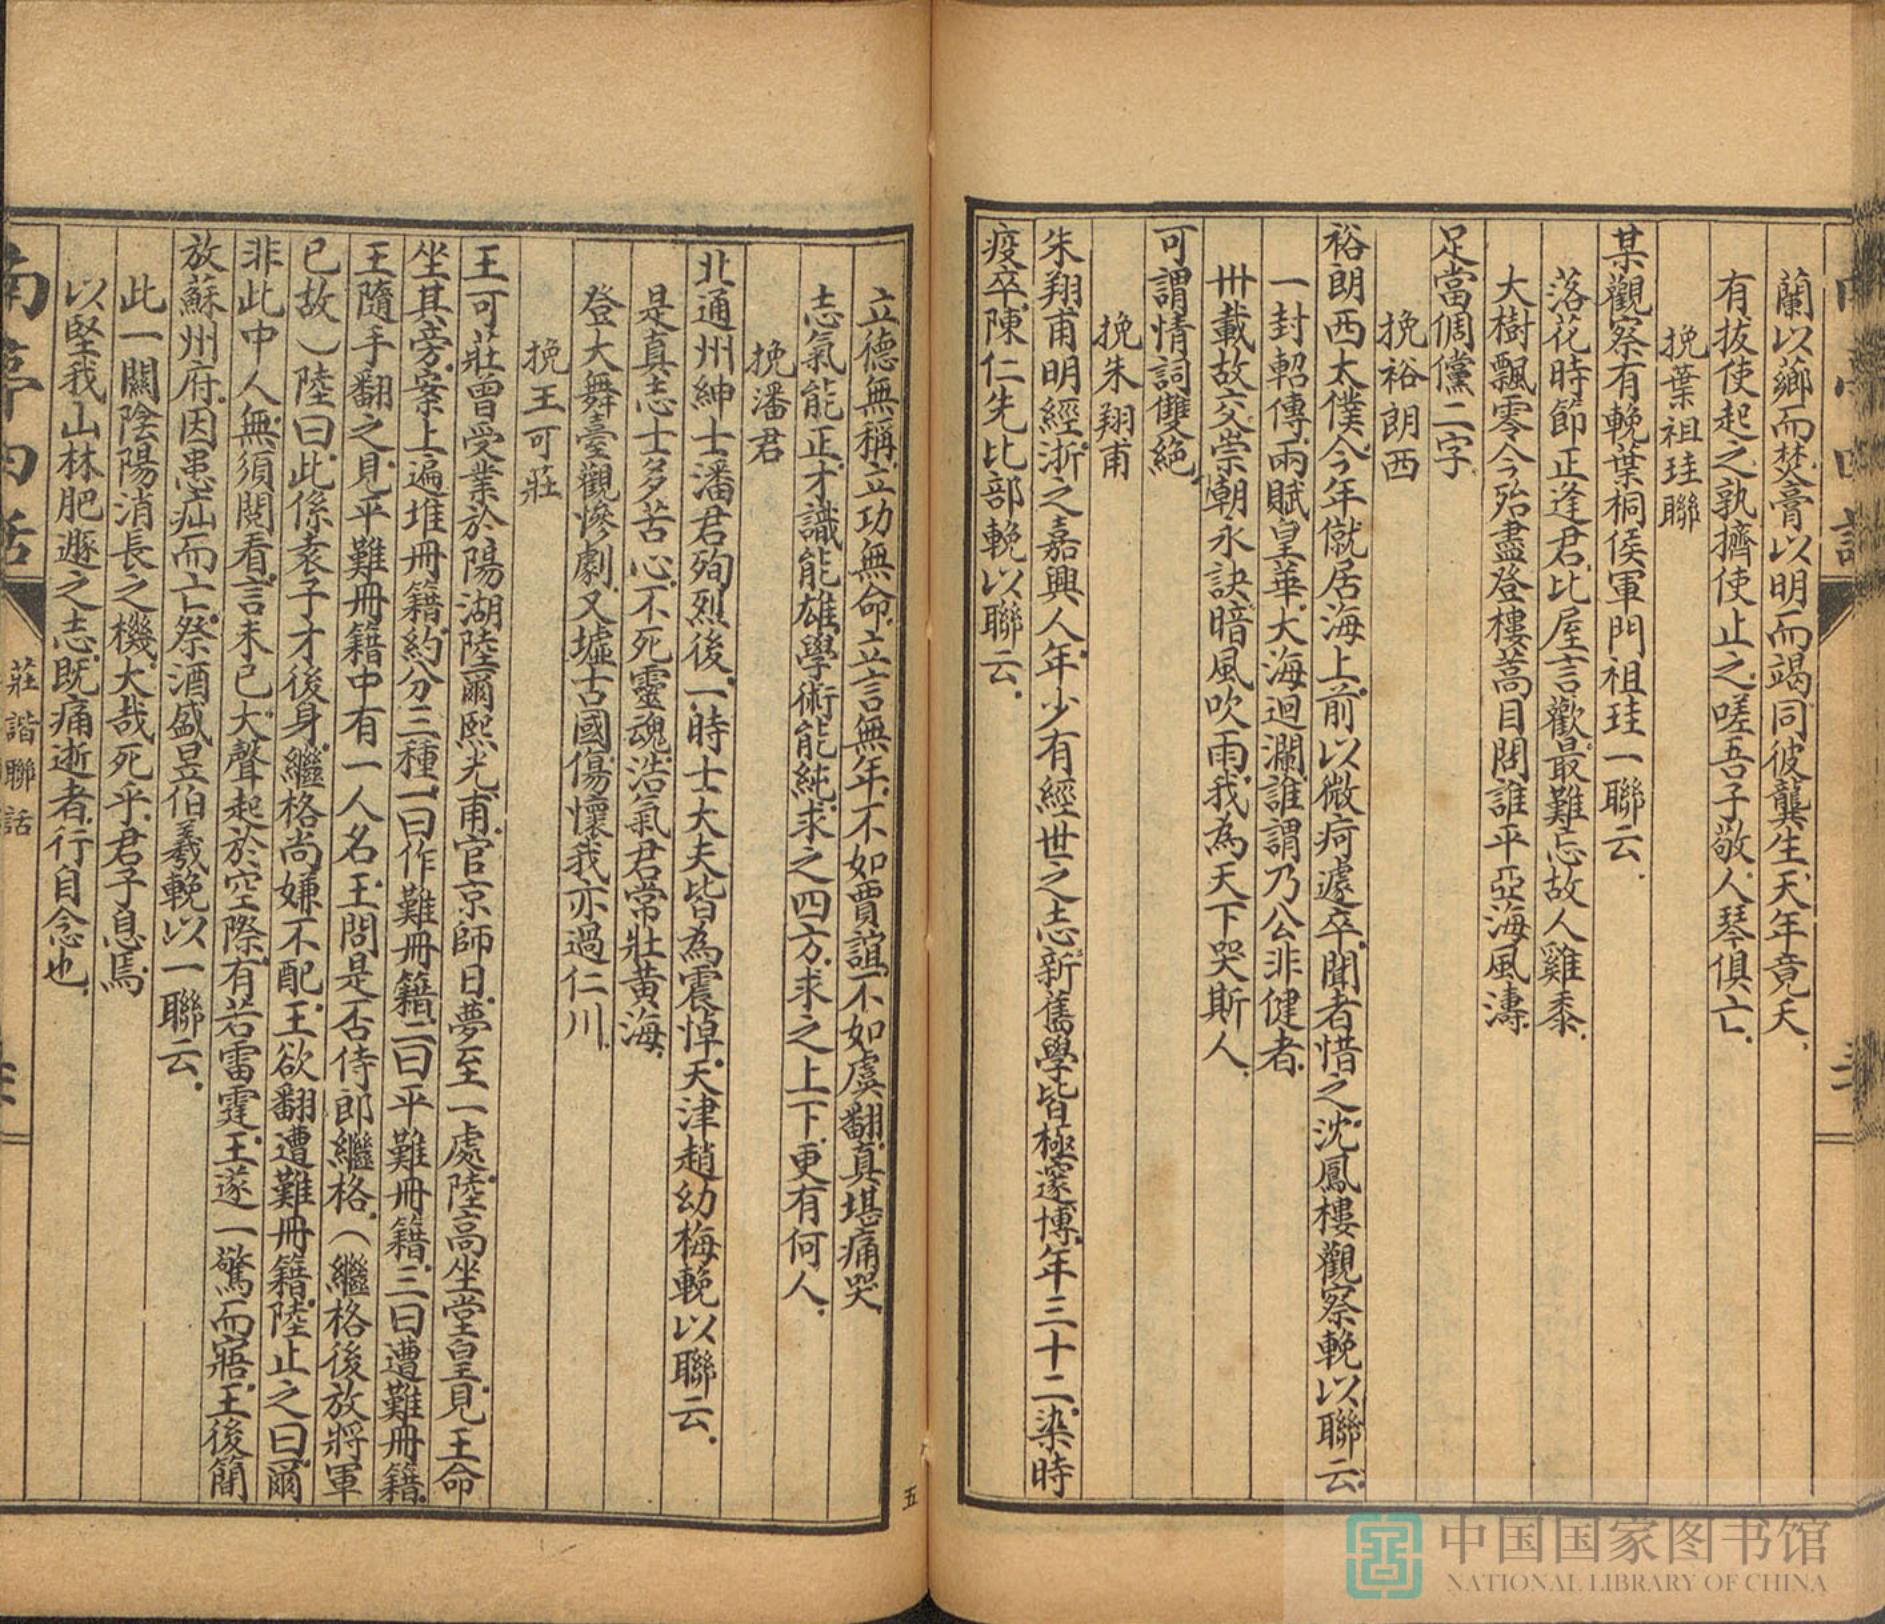 蘭以薌而焚膏以明而竭同彼龔生天年竟夭.
有拔使起之孰擠使止之嗟吾子敬人琴俱亡.
挽葉祖珪聯
某觀察有輓葉桐侯軍門祖珪一聯云.
落花時節正逢君.比屋言歡.最難忘故人雞黍.
大樹飄零今殆盡登樓蒿目問誰平亞海風濤.
足當倜儻二字.
挽裕朗西
裕朗西太僕今年僦居海上前以微疴遽卒.聞者惜之.沈鳳樓觀察輓以聯云.
一封軺傳.兩賦皇華.大海迴瀾.誰謂乃公非健者.
卅載故交.崇朝永訣.暗風吹雨.我為天下哭斯人.
可謂情詞雙絕.
挽朱翔甫
朱翔甫明經.浙之嘉興人.年少有經世之志.新舊學皆極邃博.年三十二.染時
疫卒.陳仁先比部輓以聯云.
立德無稱.立功無命.立言無年.不如賈誼.不如虞翻.真堪痛哭.
志氣能正.才識能雄.學術能純.求之四方.求之上下.更有何人.
挽潘君
北通州紳士潘君殉烈後.一時士大夫皆為震悼.天津趙幼梅輓以聯云.
是真志士多苦心.不死靈魂.浩氣君常壯黃海.
登大舞臺觀慘劇.又墟古國.傷懷我亦過仁川.
挽王可莊
王可莊曾受業於陽湖陸爾熙光甫.官京師日.夢至一處.陸高坐堂皇.見王命
坐其旁.案上遍堆冊籍.約分三種.一曰作難冊籍.二曰平難冊籍.三曰遭難冊籍.
王隨手翻之.見平難冊籍中有一人名王.問是否侍郎繼格.（繼格後放將軍
已故）陸曰.此係袁子才後身.繼格尚嫌不配.王欲翻遭難冊籍.陸止之曰.爾
非此中人.無須閱看.言未已.大聲起於空際.有若雷霆.王遂一驚而寤.王後簡
放蘇州府.因患疝而亡.祭酒盛昱伯羲輓以一聯云.
此一關陰陽消長之機.大哉死乎.君子息焉.
以堅我山林肥遯之志.既痛逝者.行自念也.
南亭四話
莊諧聯話
五
中国国家图书馆
NATIONAL LIBRARY OF CHINA